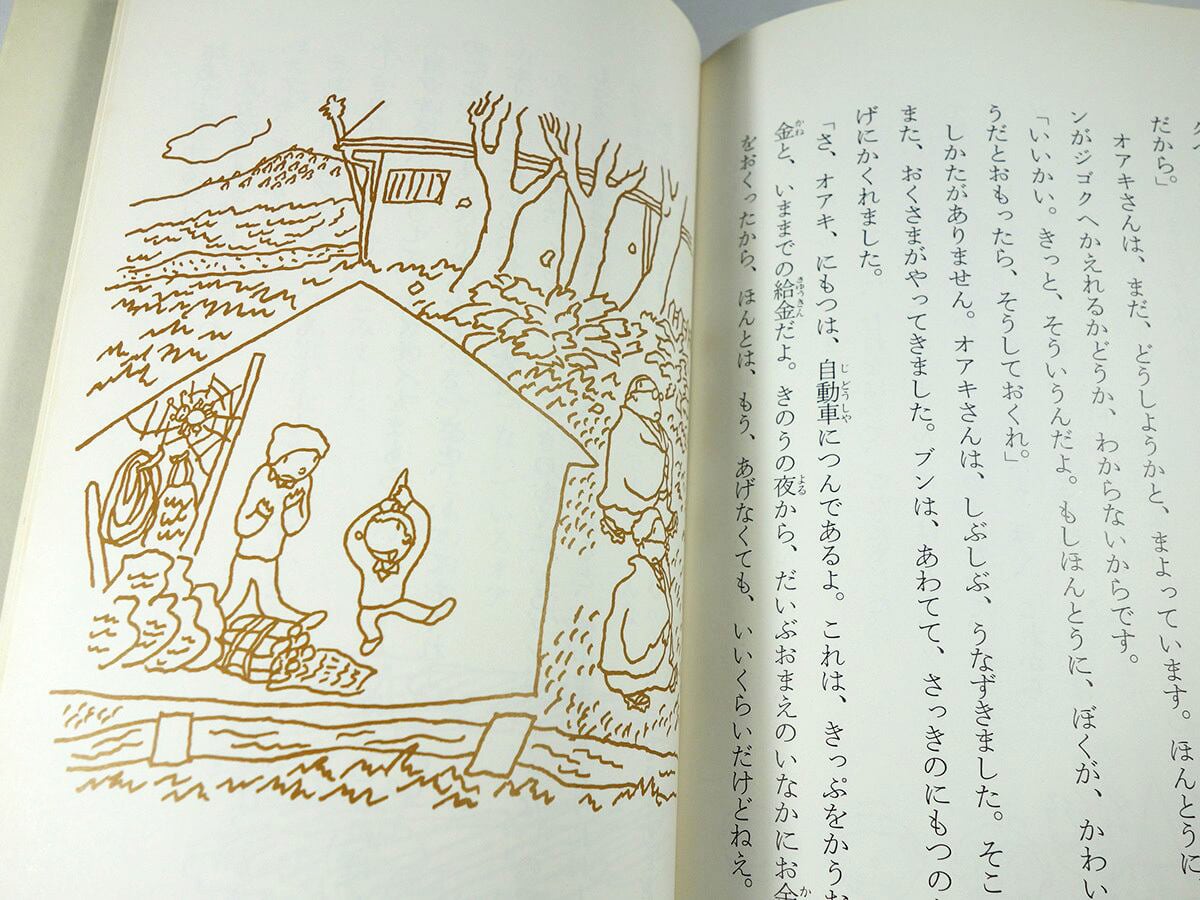 だから」
オアキさんは、まだ、どうしようかと、まよっています。ほんとうに
ンがジゴクへかえれるかどうか、わからないからです。
「いいかい。きっと、そういうんだよ。もしほんとうに、ぼくが、かわい
うだとおもったら、そうしておくれ」
しかたがありません。オアキさんは、しぶしぶ、うなずきました。そこ
また、おくさまがやってきました。ブンは、あわてて、さっきのにもつの
げにかくれました。
「さ、オアキ、にもつは、自動車につんであるよ。これは、きっぷをかうお
金と、いままでの給金だよ。きのうの夜から、だいぶおまえのいなかにお金
をおくったから、ほんとは、もう、あげなくても、いいくらいだけどねえ。